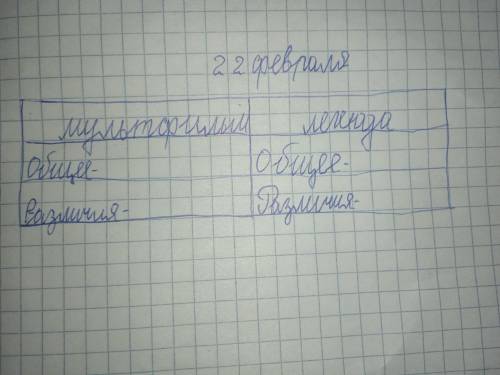 22 февраля
мультфильм легенда
Общее- Общее-
Различия- Различия-